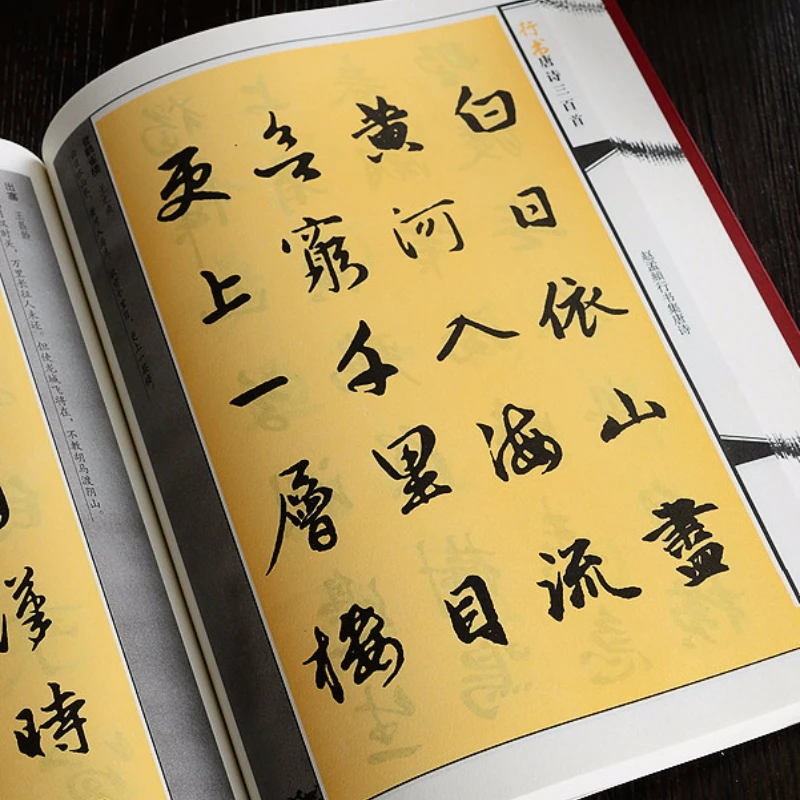 行书唐诗三百首
赵孟頫行书集唐诗
白日依山盡
黄河入海流
窮千里目
更上一層樓
出塞 王昌龄
汉时关，万里长征人未还。但使龙城飞将在，不教胡马渡阴山。
漢時